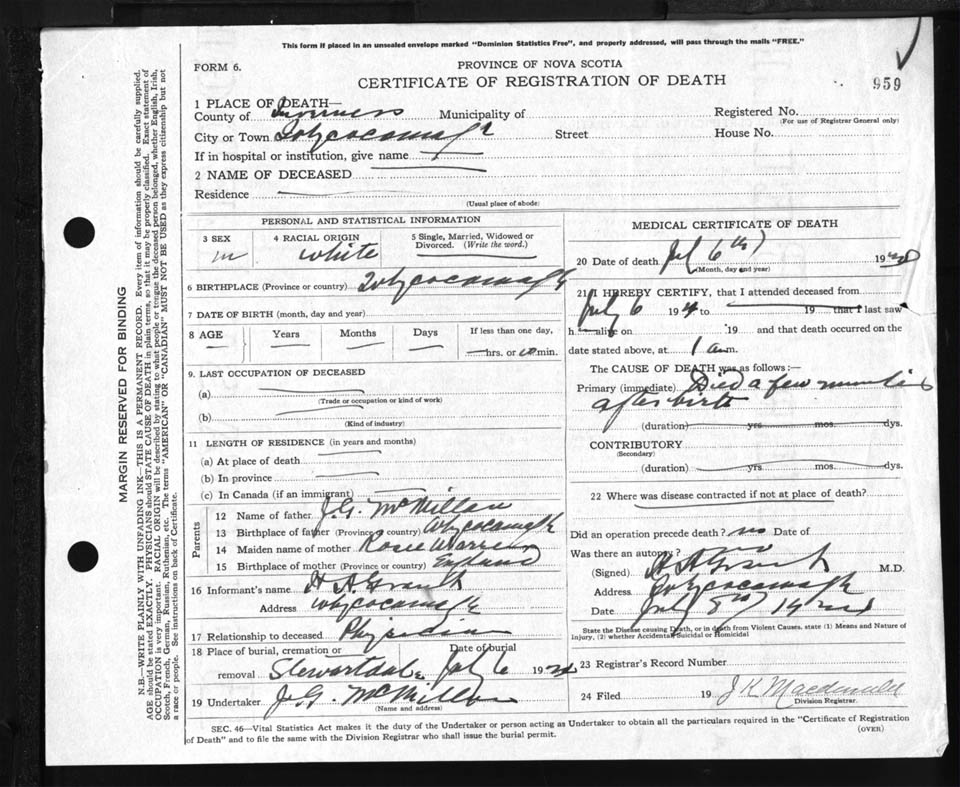 This form if placed in an unsealed envelope marked "Dominion Statistics Free", and properly addressed, will pass through the mails "FREE."
FORM 6.
PROVINCE OF NOVA SCOTIA
CERTIFICATE OF REGISTRATION OF DEATH
959
1 PLACE OF DEATH—
County of Inverness Municipality of
Registered No.
(For use of Registrar General only)
City or Town Whycocomagh Street House No.
If in hospital or institution, give name
2 NAME OF DECEASED
Residence
(Usual place of abode)
PERSONAL AND STATISTICAL INFORMATION
3 SEX 4 RACIAL ORIGIN 5 Single, Married, Widowed or Divorced. (Write the word.)
m white
6 BIRTHPLACE (Province or country) Whycocomagh
7 DATE OF BIRTH (month, day and year)
8 AGE Years Months Days If less than one day,
hrs. or min.
9. LAST OCCUPATION OF DECEASED
(a)
(Trade or occupation or kind of work)
(b)
(Kind of industry)
11 LENGTH OF RESIDENCE (in years and months)
(a) At place of death
(b) In province
(c) In Canada (if an immigrant)
Parents
12 Name of father J. G. McMillan
13 Birthplace of father (Province or country) Whycocomagh
14 Maiden name of mother Rosie Warren
15 Birthplace of mother (Province or country) England
16 Informant's name H A Grant
Address Whycocomagh
17 Relationship to deceased Physician
18 Place of burial, cremation or removal Stewartdale Date of burial July 6 19
19 Undertaker J. G. McMillan
(Name and address)
MEDICAL CERTIFICATE OF DEATH
20 Date of death Jul 6th 19
(Month, day and year)
21 I HEREBY CERTIFY, that I attended deceased from
July 6 19 to 19 that I last saw
h alive on 19 and that death occurred on
date stated above, at 1 a m.
The CAUSE OF DEATH was as follows:—
Primary (immediate) Died a few minutes
after birth
(duration) yrs mos. dys.
CONTRIBUTORY
(Secondary)
(duration) yrs mos. dys.
22 Where was disease contracted if not at place of death?
Did an operation precede death? no Date of
Was there an autopsy? no
(Signed) H A Grant M.D.
Address Whycocomagh
Date July
State the Disease causing Death, or in death from Violent Causes, state (1) Means and Nature of Injury, (2) whether Accidental, Suicidal or Homicidal
23 Registrar's Record Number
24 Filed 19 J K Macdonald
Division Registrar.
SEC. 46—Vital Statistics Act makes it the duty of the Undertaker or person acting as Undertaker to obtain all the particulars required in the "Certificate of Registration
of Death" and to file the same with the Division Registrar who shall issue the burial permit.
(OVER)
MARGIN RESERVED FOR BINDING
N.B.—WRITE PLAINLY WITH UNFADING INK—THIS IS A PERMANENT RECORD. Every item of information should be carefully supplied.
AGE should be stated EXACTLY. PHYSICIANS should STATE CAUSE OF DEATH in plain terms, so that it may be properly classified. Exact statement of
OCCUPATION is very important. RACIAL ORIGIN will be described by stating to what people or tongue the deceased person belonged, whether English, Irish,
Scotch, French, German, Russian, Ruthenian, etc. The terms "AMERICAN" or "CANADIAN" MUST NOT BE USED as they express citizenship but not
a race or people. See instructions on back of Certificate.